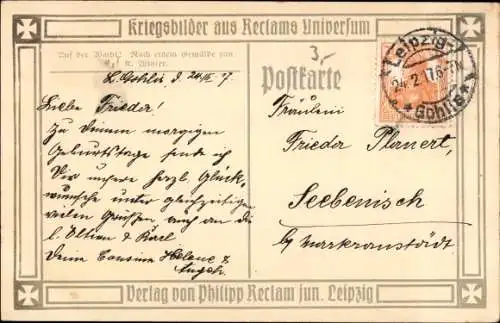 Kriegsbilder aus Reclams Universum
Auf der Wacht. Nach einem Gemälde von
K. Winter.
3,-
Postkarte
Leipzig-
24.2.17.6-7N.
* Gohlis *
L. Gohlis, d. 24/II. 17
Liebe Frieda!
Zu Deinem morgigen
Geburtstage sende ich
Dir unsere herzl. Glück-
wünsche unter gleichzeitigen
vielen Grüssen auch an die
l. Eltern & Karl
Deine Cousine Helene &
Fräulein
Frieda Planert,
Seebenisch
b/ Markranstädt
Verlag von Philipp Reclam jun. Leipzig